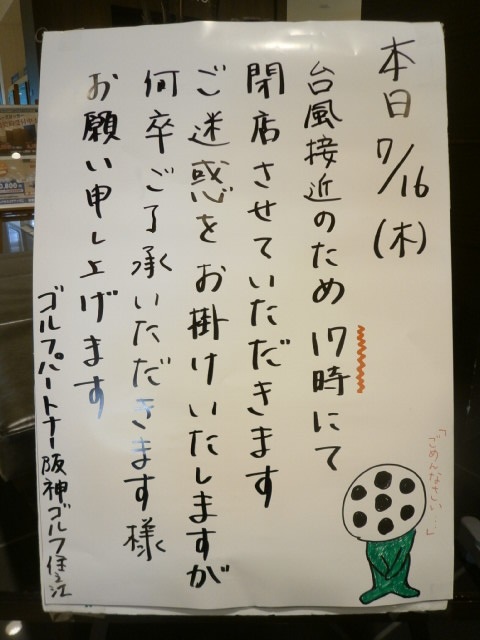 本日 7/16 (木)
台風接近のため 17時にて
閉店させていただきます
ご迷惑をお掛けいたしますが
何卒ご了承いただきます様
お願い申し上げます
ゴルフパートナー阪神ゴルフ住之江
「ごめんなさい…」